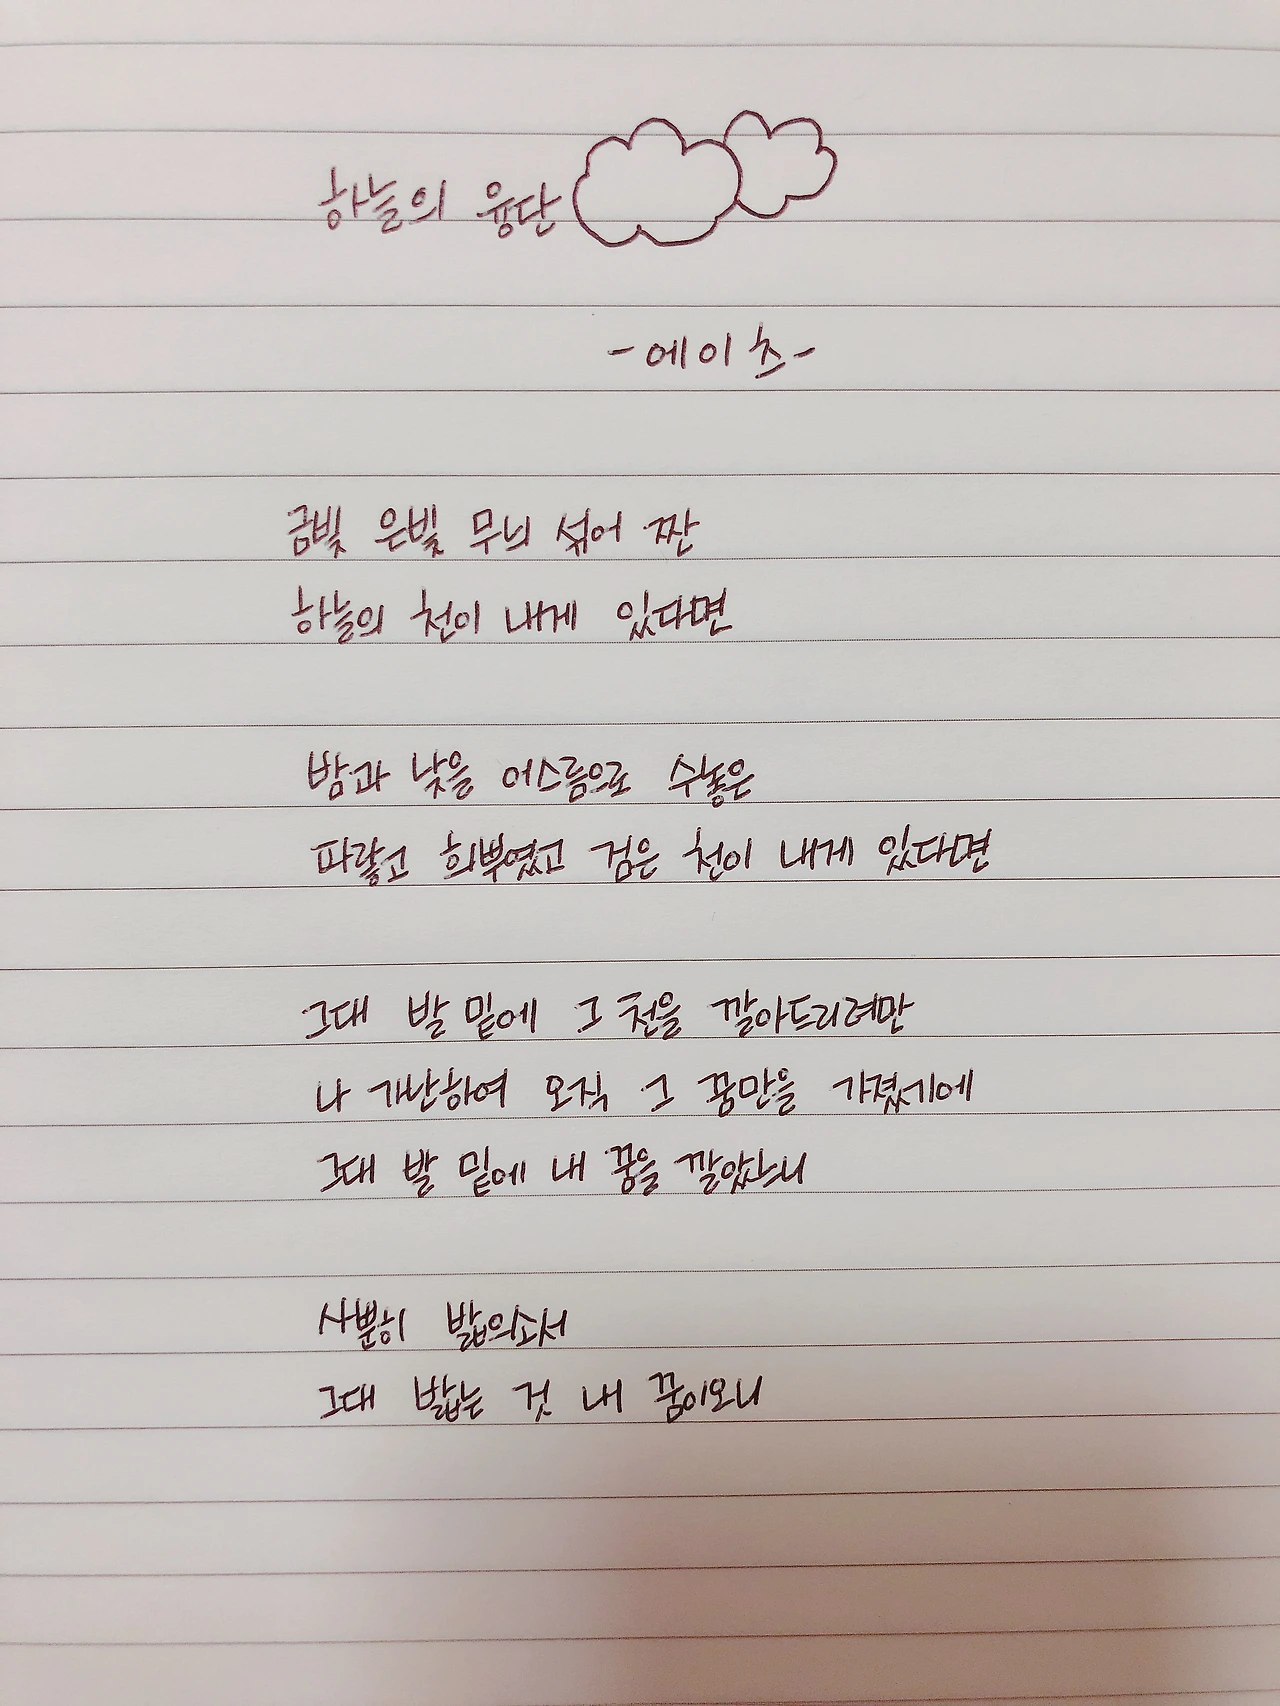 하늘의 융단
-에이츠-
금빛 은빛 무늬 섞어 짠
하늘의 천이 내게 있다면
밤과 낮을 어스름으로 수놓은
파랗고 희뿌옇고 검은 천이 내게 있다면
그대 발 밑에 그 천을 깔아드리려만
나 가난하여 오직 그 꿈만을 가졌기에
그대 발 밑에 내 꿈을 깔았느니
사뿐히 밟으소서
그대 밟는 것 내 꿈이오니